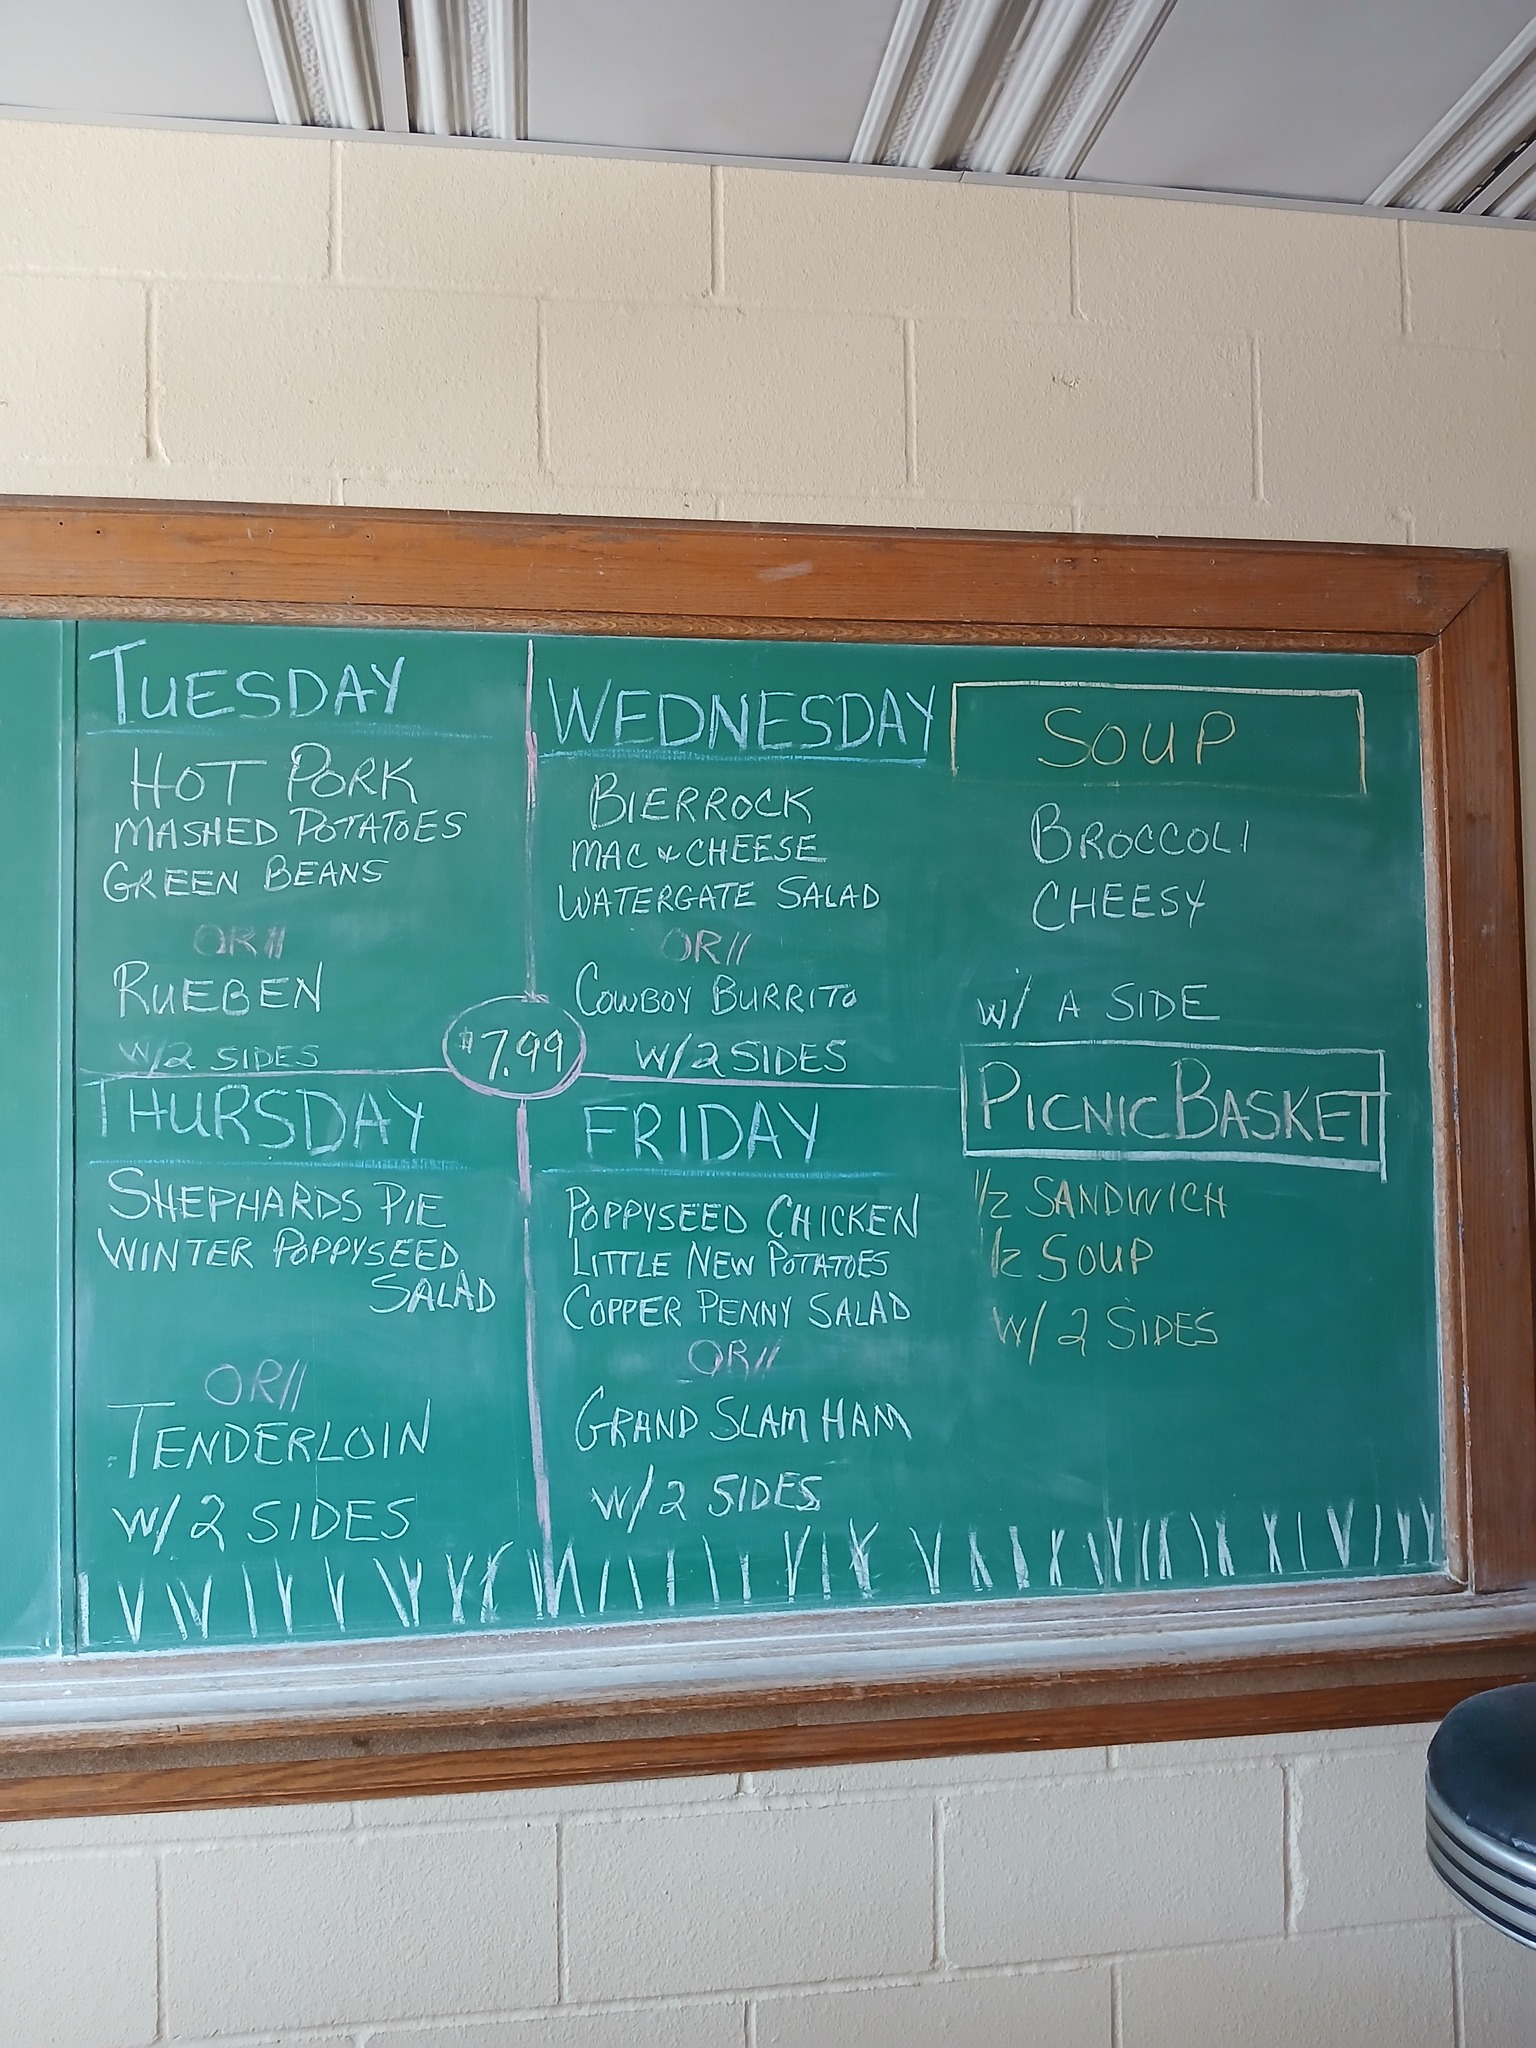 TUESDAY
HOT PORK
MASHED POTATOES
GREEN BEANS
OR//
RUEBEN
W/2 SIDES
WEDNESDAY
BIERROCK
MAC & CHEESE
WATERGATE SALAD
OR//
COWBOY BURRITO
W/2 SIDES
$7.99
THURSDAY
SHEPHARDS PIE
WINTER POPPYSEED
SALAD
OR//
TENDERLOIN
W/2 SIDES
FRIDAY
POPPYSEED CHICKEN
LITTLE NEW POTATOES
COPPER PENNY SALAD
OR//
GRAND SLAM HAM
W/2 SIDES
SOUP
BROCCOLI
CHEESY
W/ A SIDE
PICNIC BASKET
1/2 SANDWICH
1/2 SOUP
W/2 SIDES